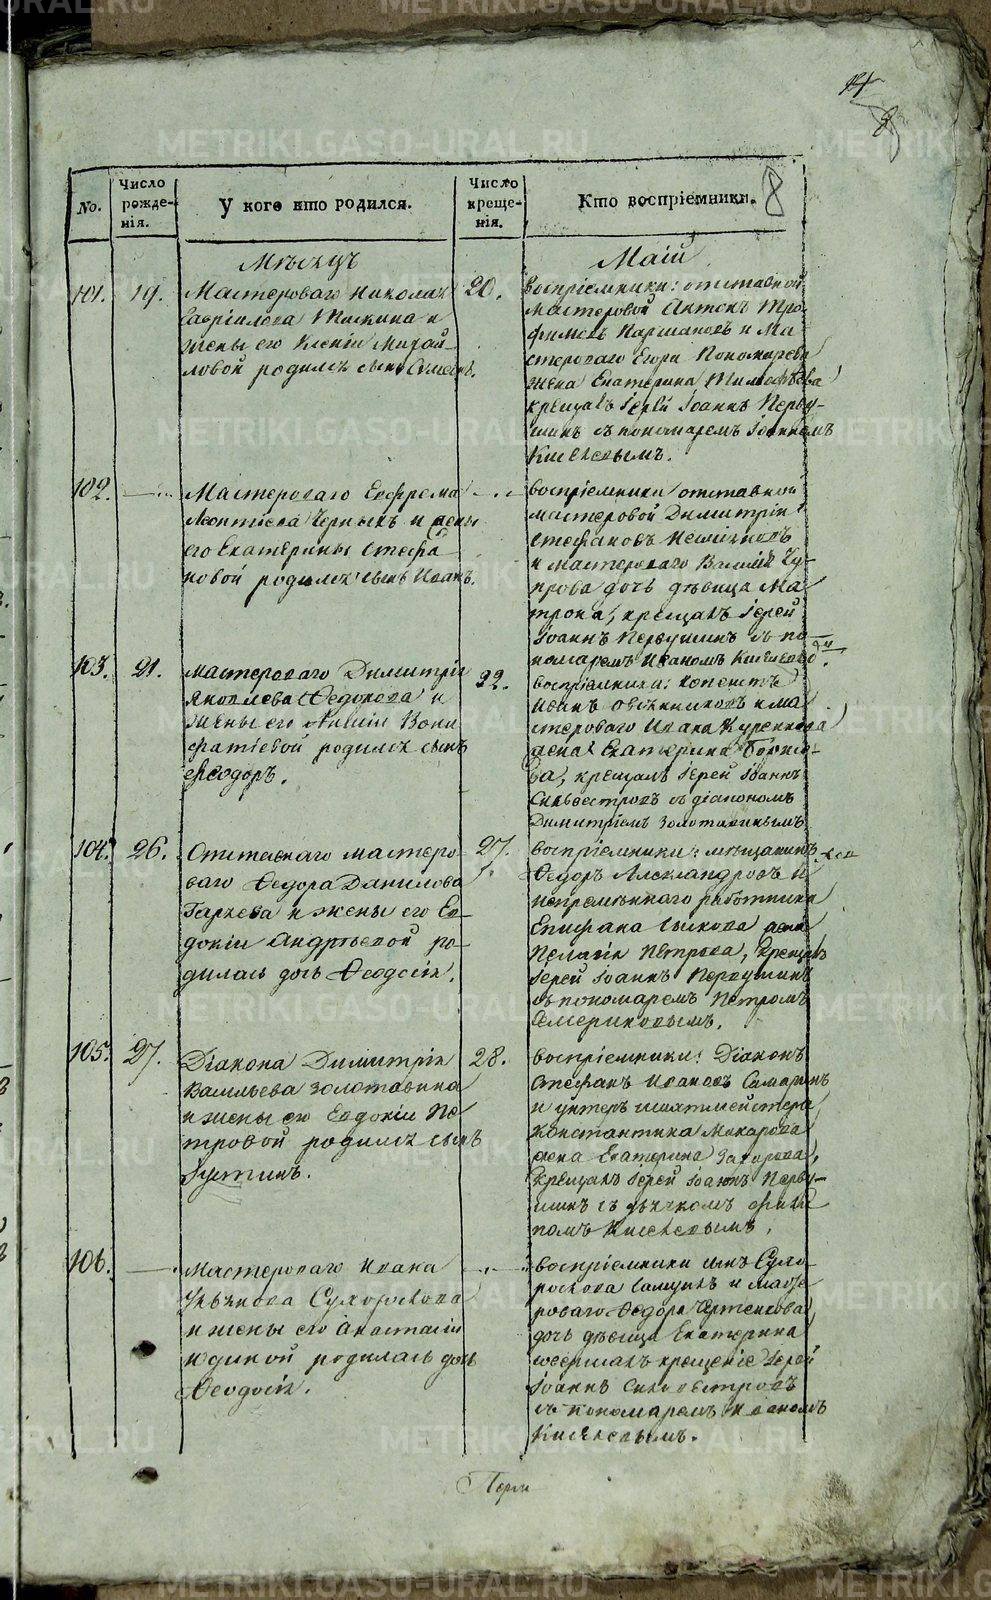 8
No.
Число рожде-нія.
У кого кто родился.
Число креще-нія.
Кто воспріемники.
8
Мѣсяцъ
Маій
101.
19.
Мастероваго Николая
Гавріилова
жены его Ксеніи Михай-
ловой родился сынъ Симеонъ.
20.
Воспріемники: отставной
мастеровой Антонъ Тро-
фимовъ и Ма-
стероваго Егора Пономарева
жена Екатерина Тимофѣева
крещалъ Іерей Іоаннъ Перву-
шинъ съ пономаремъ Іоанномъ
Киселевымъ.
102.
Мастероваго Ефрема
Леонтіева Черныхъ и жены
его Екатерины Стефа-
новой родился сынъ Иванъ.
воспріемники отставной
мастеровой Димитрій
Стефановъ
и мастероваго Василія Чу-
прова дочь дѣвица Ма-
трона, крещалъ Іерей
Іоаннъ Первушинъ съ по-
номаремъ Иваномъ Киселевы.
103.
21.
мастероваго Димитрія
Яковлева Федорова и
жены его Вони-
фатіевой родился сынъ
Феодоръ.
22.
воспріемники:
Иванъ Овчинниковъ и ма-
стероваго Ивана
жена Екатерина
крещалъ Іерей Іоаннъ
Сильвестровъ съ діакономъ
Димитріемъ Золотавинымъ
104.
26.
Отставнаго мастеро-
ваго Федора Данилова
и жены его Ев-
докіи Андреевой ро-
дилась дочь Феодосія.
27.
воспріемники: мѣщанинъ
Федоръ Александровъ и
непремѣннаго работника
Епифана жена
Пелагія Петрова, крещалъ
Іерей Іоаннъ Первушинъ
съ пономаремъ Петромъ
105.
27.
Діакона Димитрія
Васильева Золотавина
и жены его Евдокіи Пе-
тровой родился сынъ
Іустинъ.
28.
Воспріемники: Діаконъ
Стефанъ Ивановъ Самаринъ
и унтеръ шахтмейстера
Константина Макарова
жена Екатерина Захарова,
крещалъ Іерей Іоаннъ Перву-
шинъ съ дьячкомъ Филип-
помъ Киселевымъ.
106.
мастероваго Ивана
Сухорослова
и жены его Анастасіи
родилась дочь
Феодосія.
воспріемники сынъ Сухо-
рослова и масте-
роваго Федора
дочь дѣвица Екатерина
совершалъ крещеніе Іерей
Іоаннъ Сильвестровъ
съ пономаремъ Иваномъ
Киселевымъ.
METRIKI.GASO-URAL.RU